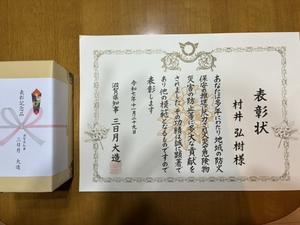 表彰状
村井 弘樹様
あなたは多年にわたり地域の防火
保安の推進に尽力され危険物
災害の防止等に多大な貢献を
されましたその功績は誠に顕著で
あり他の模範となるものですので
表彰します
令和七年十月二十九日
滋賀県知事 三日月 大造
表彰記念品
滋賀県知事
三日月 大造